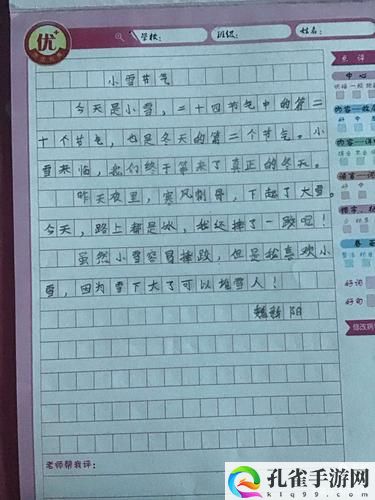 优
学校:
班级:
姓名:
小雪节气
今天是小雪，二十四节气中的第二
十个节气，也是冬天的第二个节气。小
雪来临，我们终于等来了真正的冬天。
昨天夜里，寒风刺骨，下起了大雪。
今天，路上都是冰，我还摔了一跤呢！
虽然小雪容易摔跤，但是我喜欢小
雪，因为雪下大了可以堆雪人！
阳
点评
中心
好词
好句
老师帮我评:
孔雀手游网
k1q99.com